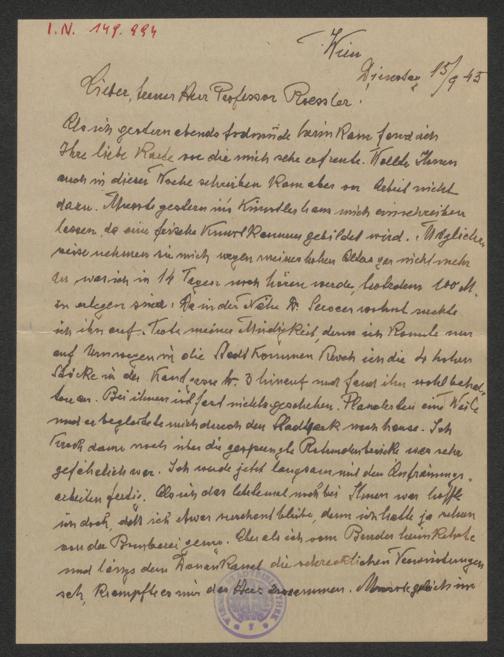 I.N. 149.994
Wien
Dienstag 15/9 45
Lieber, teurer Herr Professor Roessler!
Als ich gestern abends todmüde heim kam, fand ich
Ihre liebe Karte vor die mich sehr erfreute. Wollte Ihnen
auch in dieser Woche schreiben kam aber vor Arbeit nicht
dazu. Musste gestern ins Künstlerhaus mich einschreiben
lassen, da eine frische Kunstkammer gebildet wird. Möglicher
weise nehmen sie mich wegen meines hohen Alters gar nicht mehr
in 14 Tagen noch hören werde, trotzdem 100 M.
zu erlegen sind! Da in der Nähe Dr. wohnt suchte
ich ihn auf. Trotz meiner Müdigkeit, denn ich konnte nur
auf Umwegen in die Stadt kommen kroch ich die 4 hohen
Stöcke in der Nr. 3 hinauf und fand ihn wohlbehal-
ten an. Bei ihnen ist fast nichts geschehen. Plauderten eine Weile
und er begleitete mich durch den Stadtpark nach hause. Ich
kroch dann noch über die gesprengte was sehr
gefährlich war. Ich werde jetzt langsam mit den Aufräumungs-
arbeiten fertig. Als ich das letztemal noch bei Ihnen war hoffte
ich doch, daß ich etwas verschont bliebe, denn ich hatte ja schon
von der genug. Als ich vom Bruder heimkehrte
und längs dem Donaukanal die schrecklichen Verwüstungen
sah, krampfte es mir das Herz zusammen. Musste